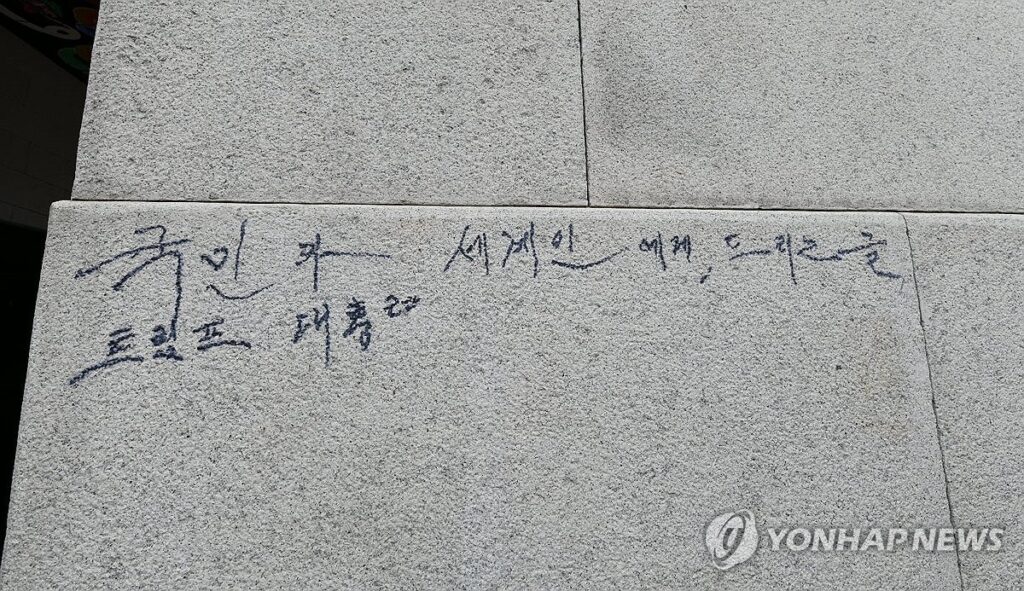 국민과 세계인에게, 드리는글
트럼프 대통령
YONHAP NEWS